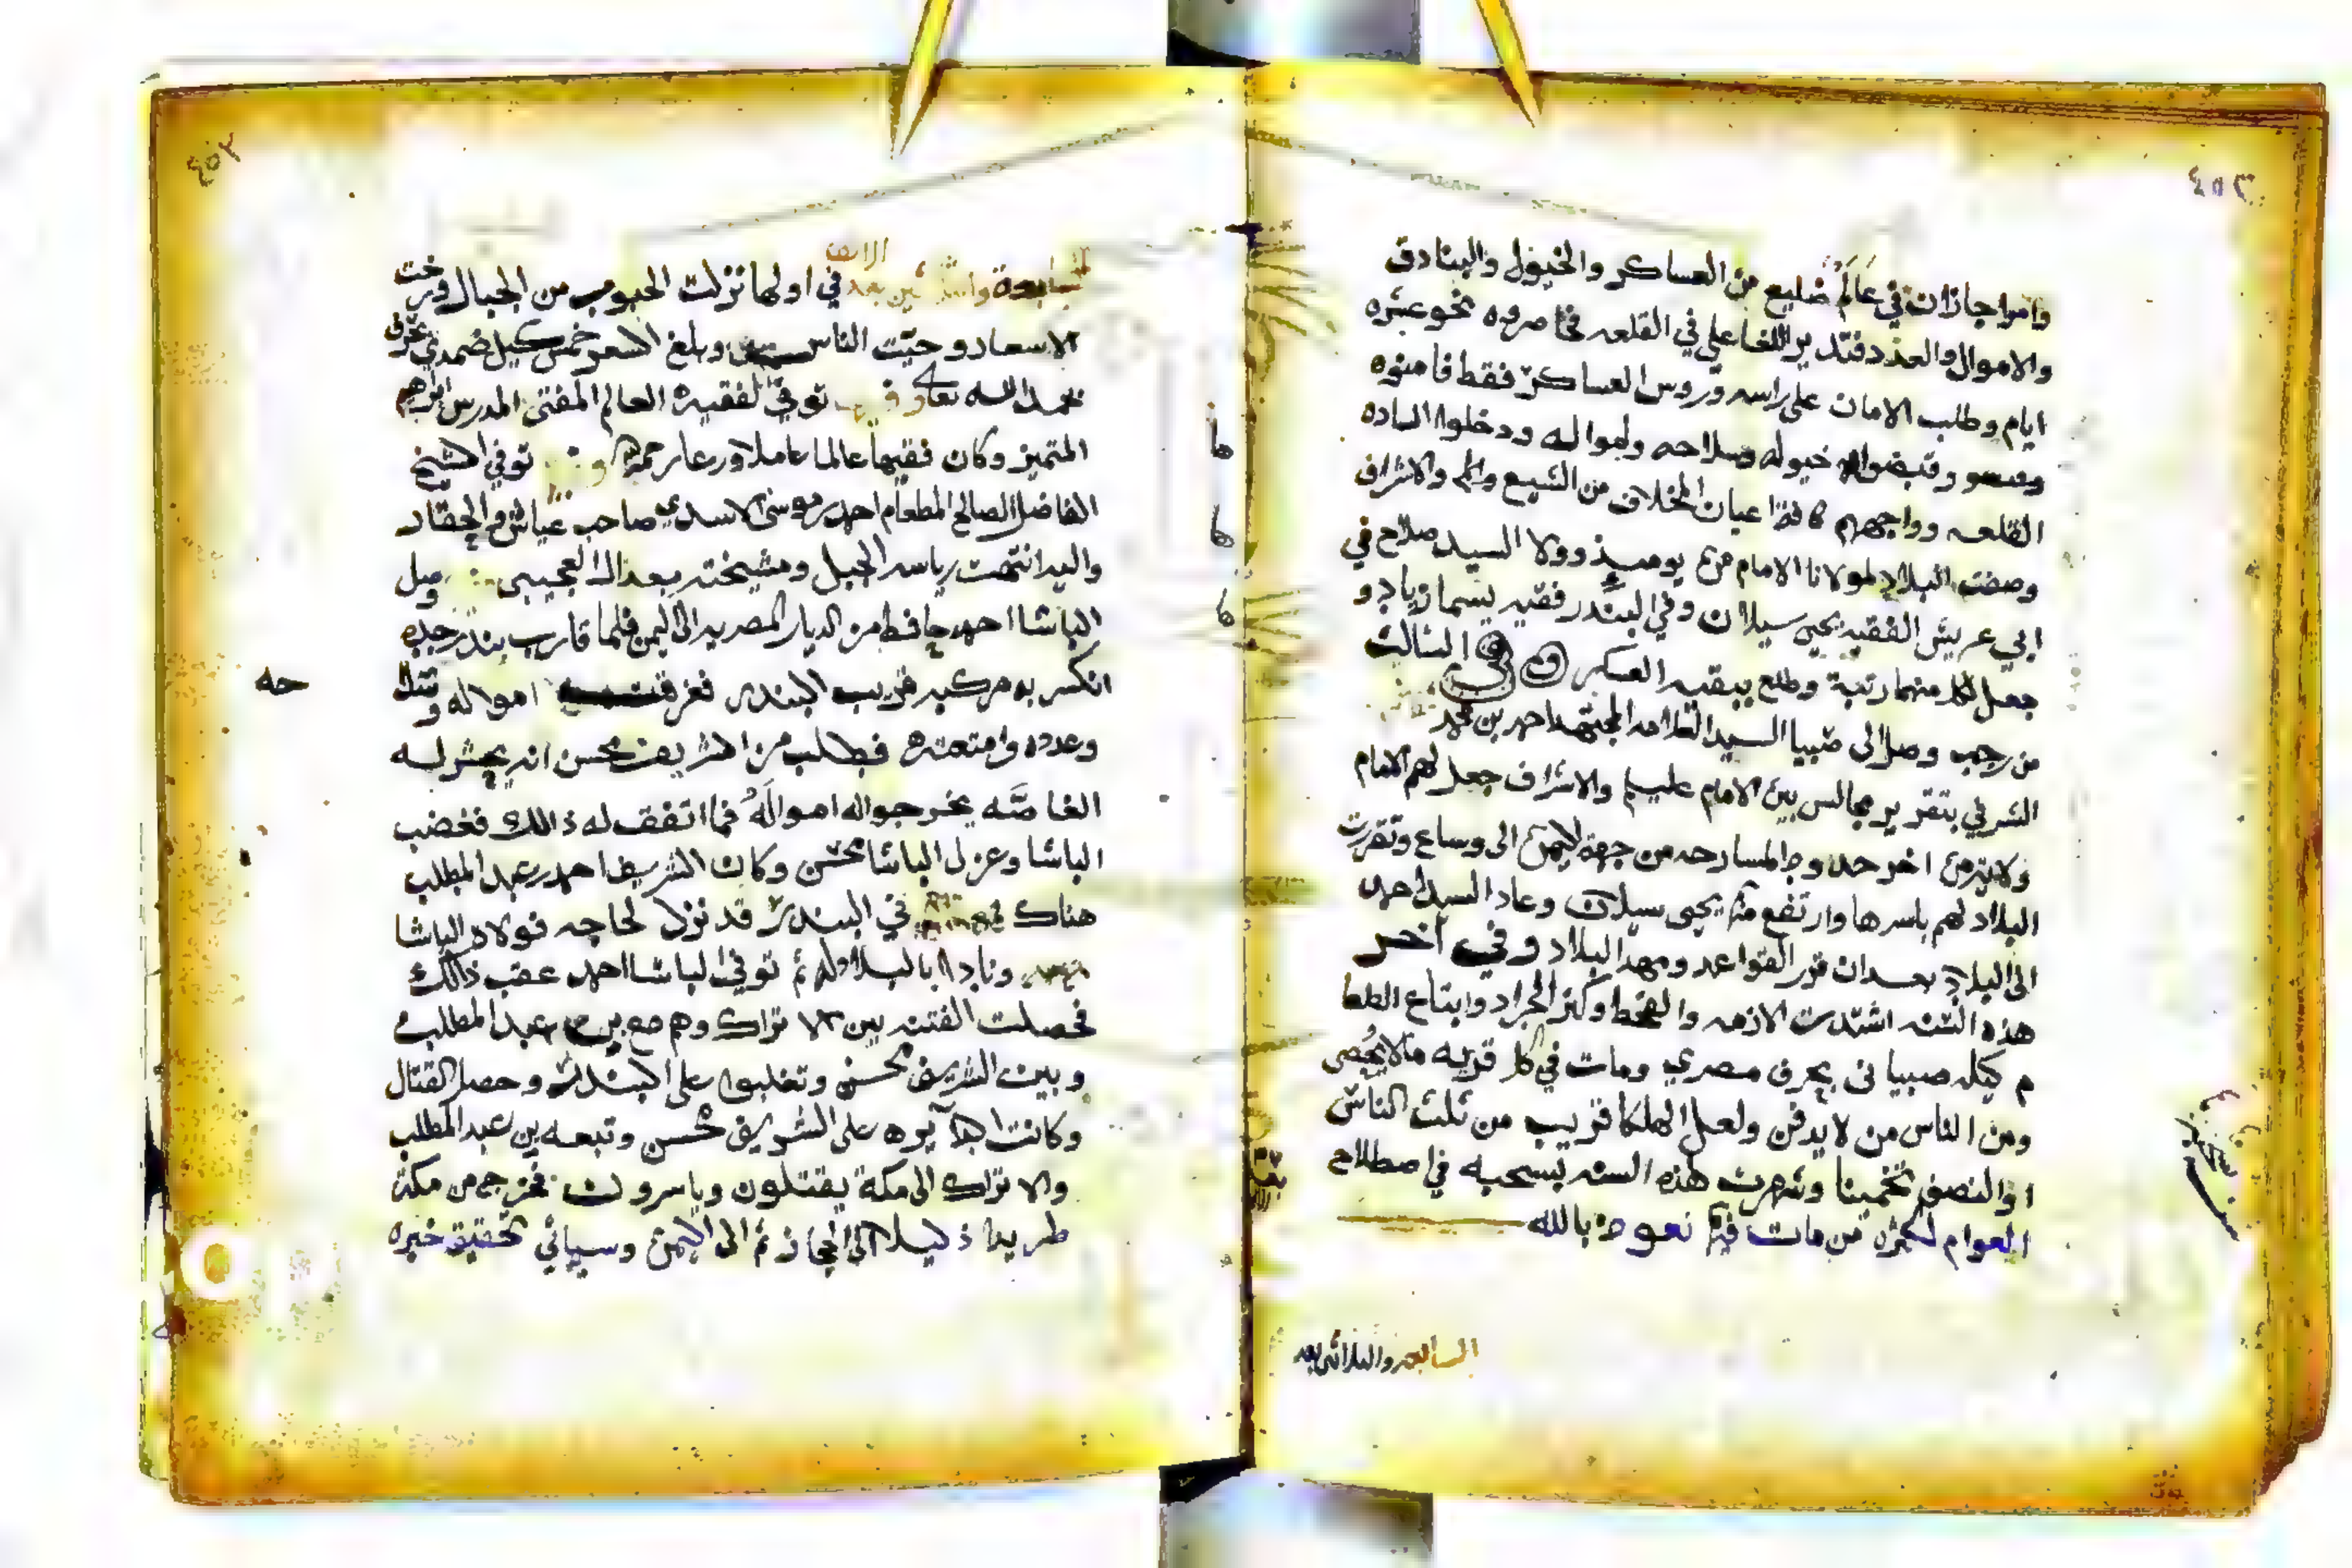 وامرا جازان في عالم ضليع من العساكر والخيول والبنادق
والاموال والعدد فتدير اللغا علي في القلعه فحاصروه نحو عشره
ايام وطلب الامان على راسه وروس العساكر فقط فامنوه
وقبضوا خيوله وسلاحه وامواله ودخلوا الساده
القلعه وواجههم كافة اعيان المخلاف من الشيع والاشراف
وصفت البلاد لمولانا الامام من يوميذ وولا السيد صلاح في
ابي عريش الفقيه يحيى سيلان وفي البندر فقيه يسما زياد و
جعل لكل منهما رتبة وطلع ببقيه العسكر وفي الثالث
من رجب وصل الى صبيا السيد العلامه المجتهد احمد بن محمد
الشرفي بتقرير مجالس بين الامام عليه والاشراف جعل لهم الامام
ولايه من اخر حد المسارحه من جهة اليمن الى وساع وتقررت
البلاد لهم باسرها وارتفع يحيى سيلان وعاد السيد احمد
الى البلاد بعد ان قرر القواعد ومهد البلاد وفي آخر
هذه السنه اشتدت الازمه والقحط وكثر الجراد وابتاع الطعا
م كيله صبياني بحرف مصري ومات في كل قريه ما لا يحصى
ومن الناس من لا يدفن ولعل الهلكا قريب من ثلث الناس
او النصف تخمينا وشهرت هذه السنه بسحبه في اصطلاح
العوام لكثرة من مات فيها نعوذ بالله
السابعه والثلاثين بعد
السابعة والثلاثين بعد الالف في اولها نزلت الحبوب من الجبال ورخت
الاسعار وحيت الناس وبلغ السعر خمس كيل ضمدي بحرف
بحمد الله تعا وفيها توفي الفقيه العالم المفتي المدرس ابراهيم
المتميز وكان فقيها عالما عاملا ورعا رحمه الله توفي الشيخ
الفاضل الصالح المطعام احمد بن موسى الاسدي صاحب عياش والحقار
واليه انتهت رياسه الجبل ومشيخته بعد العجيبي وصل
الباشا احمد حافظ من الديار المصريه الى اليمن فلما قارب بندر جده
انكسر به مركبه قريب البندر فغرقت امواله
وعدده وامتعته فطلب من الشريف محسن انه يجيش له
الغاصه يخرجوا له امواله فما اتفق له ذالك فغضب
الباشا وعزل الباشا محسن وكان الشريف احمد بن عبد المطلب
هناك في البندر قد نزل لحاجه فولاه الباشا
ونادا بالبلاد له ثم توفي الباشا احمد عقب ذالك
فحصلت الفتنه بين الاتراك وهم مع بن عبد المطلب
وبين الشريف محسن وتغلبوا على البندر وحصل القتال
وكانت الدآيره على الشريف محسن وتبعه بن عبد المطلب
والاتراك الى مكة يقتلون وياسرون فخرج من مكة
طريدا ذليلا الى الحجاز ثم الى اليمن وسياتي تحقيق خبره